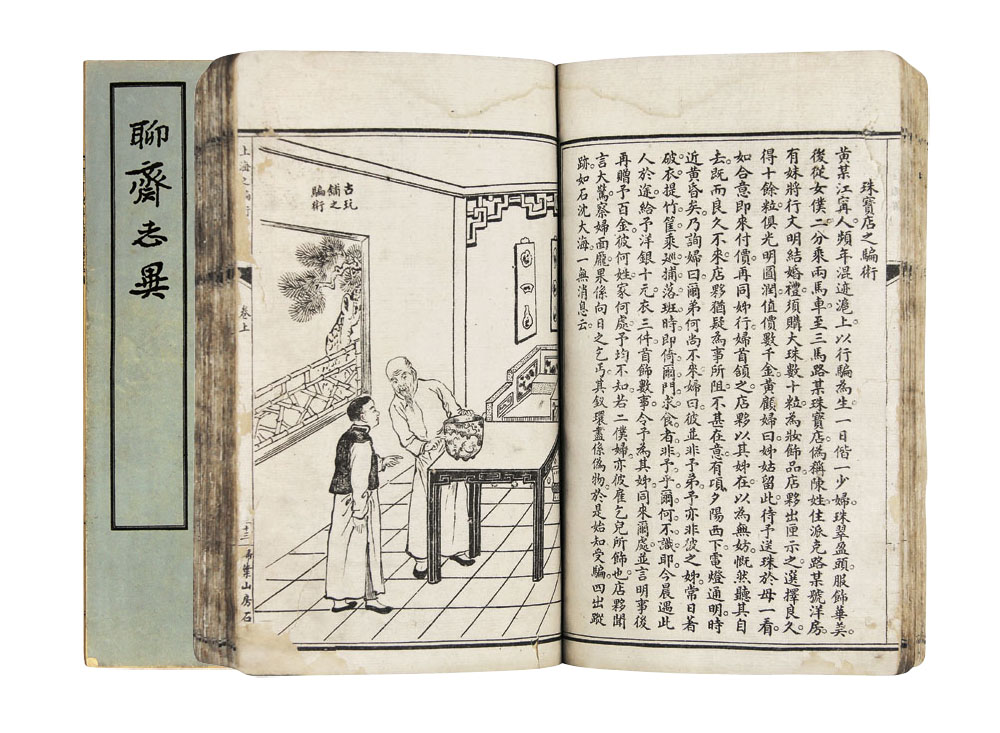 聊齋志異
珠寶店之騙術
黃某江甯人。頻年混迹滬上。以行騙為生。一日偕一少婦。珠翠盈頭。服飾華美。
後從女僕二。分乘兩馬車。至三馬路某珠寶店。偽稱陳姓。住派克路某號洋房。
有妹將行文明結婚禮。須購大珠數十粒。為妝飾品。店夥出匣示之。選擇良久。
得十餘粒。俱光明圓潤。值價數千金。黃顧婦曰。姊姑留此。待予送珠於母一看。
如合意即來付價。再同姊行。婦首頷之。店夥以其姊在。以為無妨。慨然聽其自
去。既而良久不來。店夥猶疑為事所阻。不甚在意。有頃夕陽西下。電燈通明。時
近黃昏矣。乃詢婦曰。爾弟何尚不來。婦曰。彼並非予弟。予亦非彼之姊。常日著
破衣。提竹筐。乘巡捕落班時。即倚爾門求食者。非予乎。爾何不識耶。今晨遇此
人於途。給予洋銀十元。衣三件。首飾數事。令予為其姊。同來爾處。並言明事後
再贈予百金。彼何姓家何處。予均不知。若二僕婦。亦彼雇乞兒所飾也。店夥聞
言大驚。察婦面龐。果係向日之乞丐。其釵環盡係偽物。於是始知受騙。四出蹤
跡。如石沈大海。一無消息云。
古玩
舖之
騙術
上海之騙術
卷上
掃葉山房石